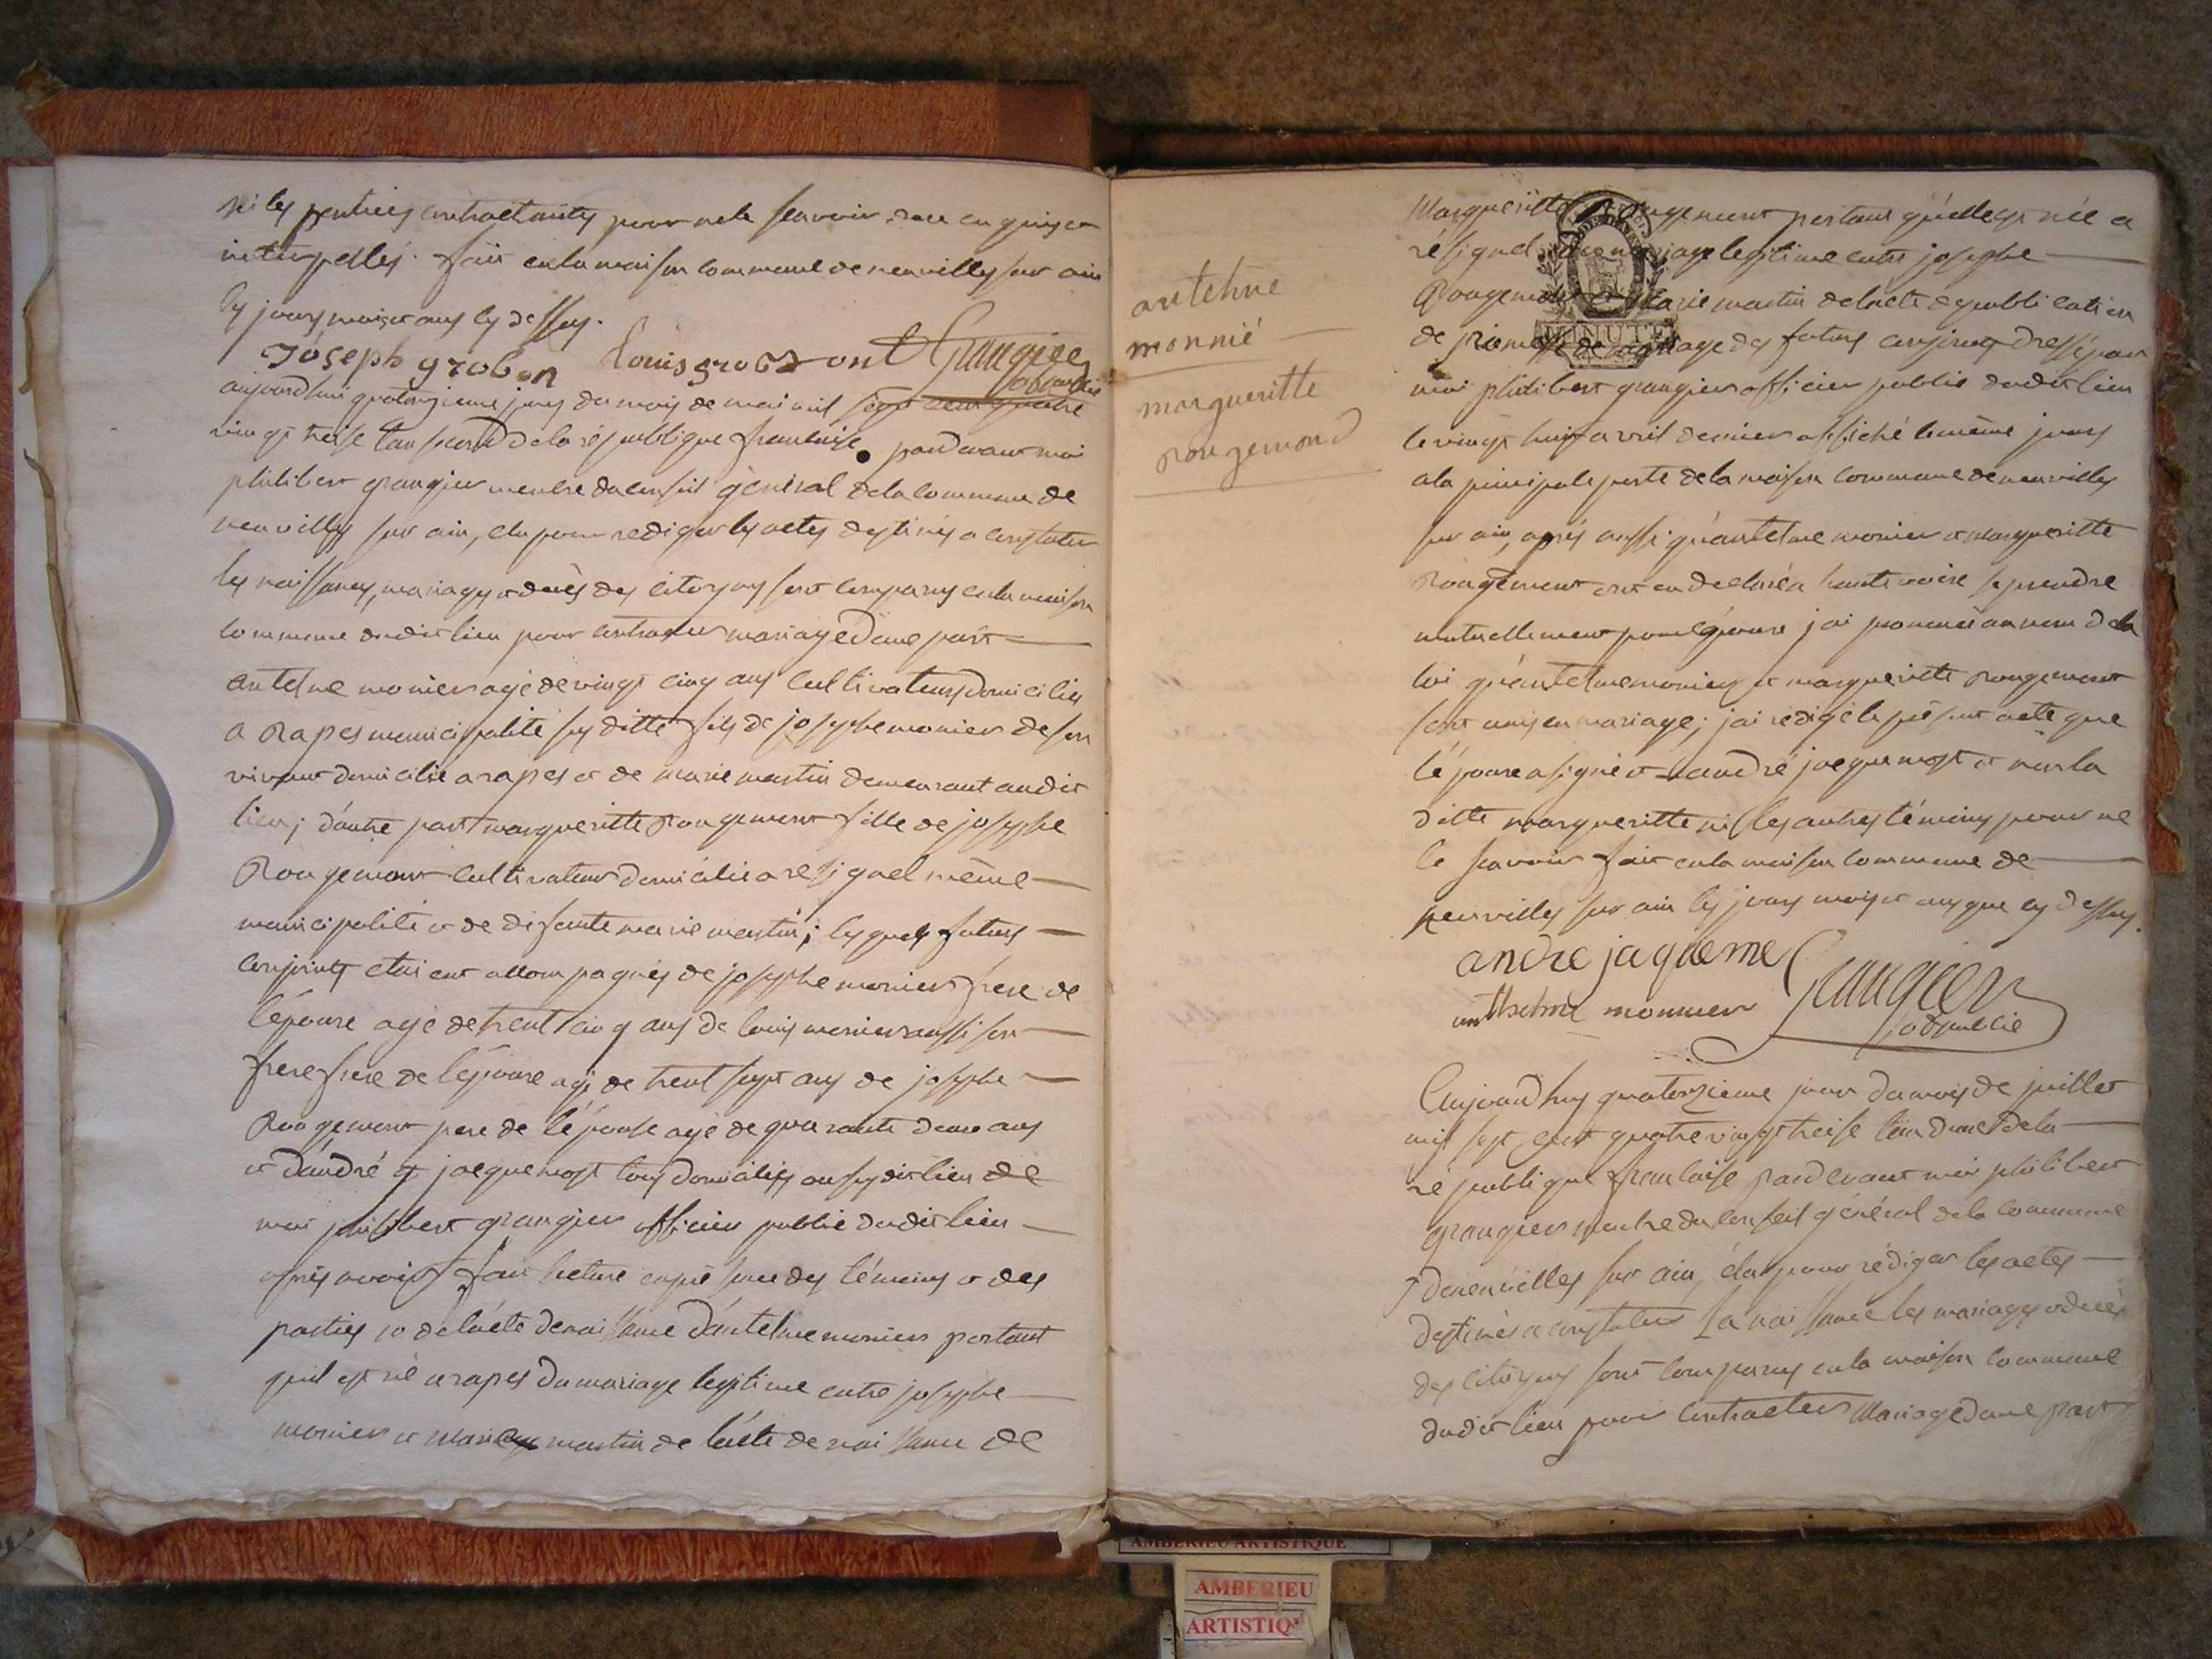 ni les parties contractantes pour ne le scavoir de ce enquis et
interpellés. fait en la maison commune de neuville sur ain
les jours mois et ans cy dessus.
Joseph groben Louis grobz ont Grangier
o. public
aujourdhui quatorzieme jour du mois de mai mil sept cent quatre
vingt treise l'an second de la république francaise pardevant moi
philibert grangier membre du conseil général de la commune de
neuville sur ain, elu pour rediger les actes destinés a constater
les naissances, mariages et decès des citoyens sont comparus en la maison
commune dudit lieu pour contracter mariage d'une part
antelme monier agé de vingt cinq ans cultivateur domicilié
a rapes municipalité susditte fils de josephe monier de son
vivant domicilié a rapes et de marie martin demeurant audit
lieu; d'autre part margueritte Rougement fille de josephe
Rougemont cultivateur domicilié a resignel même
municipalité et de defunte marie martin; lesquels futurs
conjoints etoient accompagnés de josephe monier frere de
l'époux agé de trent cinq ans de louis monier aussi son
frere frere de l'époux agé de trent sept ans de josephe
Rougement pere de l'épouse agé de quarante deux ans
et d'andré jacquemost tous domiciliés au susdit lieu de
moi philibert grangier officier public dudit lieu
après avoir fait lecture en présence des témoins et des
parties 1o de l'acte de naissance d'antelme monier portant
qu'il est né a rapes du mariage legitime entre josephe
monier et marie martin de l'acte de naissance de
antelme
monnié
margueritte
rougemond
Margueritte Rougement portant qu'elle est née a
résignel du mariage legitime entre josephe
Rougement et marie martin de l'acte de publication
de promesse de mariage des futurs conjoints dressé par
MINUTE
moi philibert grangier officier public dudit lieu
le vingt huit avril dernier affiché le même jours
a la principale porte de la maison commune de neuville
sur ain, après aussi qu'antelme monier et margueritte
Rougement ont eu declaré a haute voix se prendre
mutuellement pour époux j'ai prononcé au nom de la
loi qu'antelme monier et margueritte Rougement
sont unis en mariage; j'ai rédigé le présent acte que
l'époux a signé et andré jacquemost et non la
ditte margueritte ni les autres témoins pour ne
le scavoir fait en la maison commune de
neuville sur ain les jours mois et ans que cy dessus.
andre jaqueme
anthelme monnier Grangier
o. public
Aujourd'huy quatorzieme jour du mois de juillet
mil sept cent quatre vingt treise l'an deux de la
république francaise pardevant moi philibert
grangier membre du conseil général de la commune
de neuville sur ain, élu pour rédiger les actes
destinés a constater la naissance les mariages et decès
des citoyens sont comparus en la maison commune
dudit lieu pour contracter mariage d'une part
AMBERIEU ARTISTIQUE
AMBERIEU
ARTISTIQ